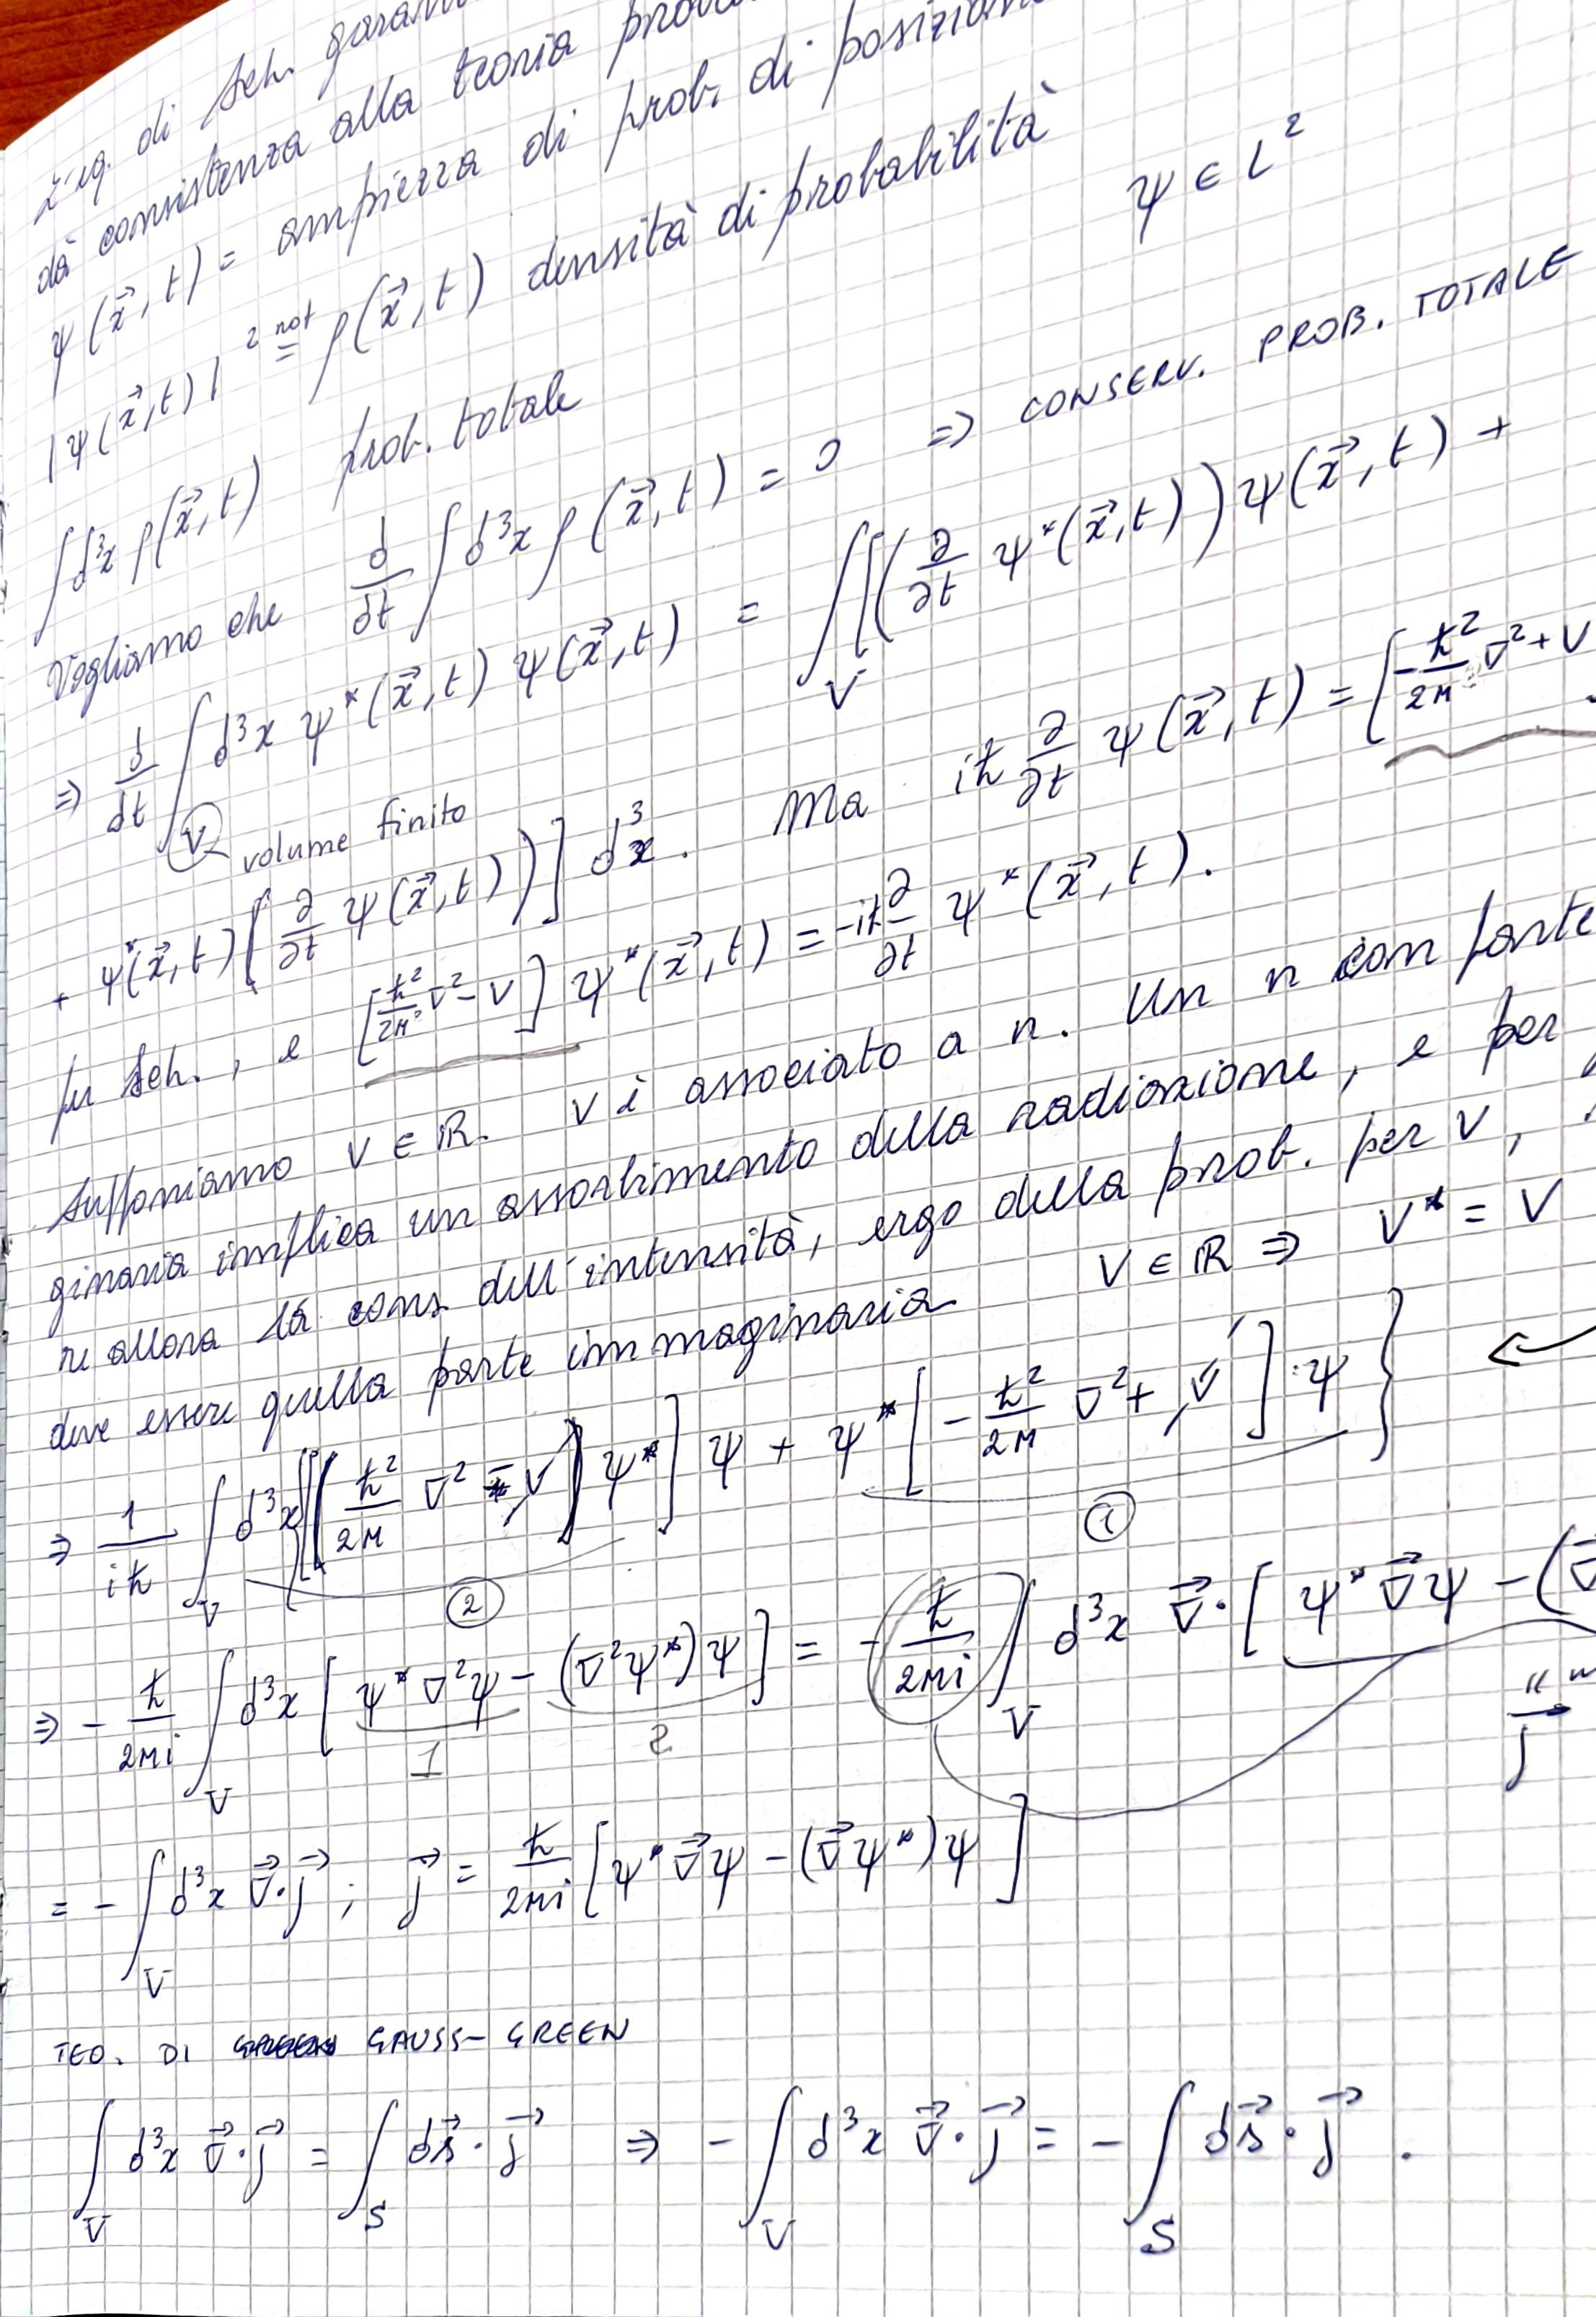 L'eq. di Sch.
dà consistenza alla teoria
ψ(x⃗,t) = ampiezza di prob. di
|ψ(x⃗,t)|² =^not ρ(x⃗,t) densità di probabilità ψ ∈ L²
∫d³x ρ(x⃗,t) prob. totale
Vogliamo che d/dt ∫d³x ρ(x⃗,t) = 0 ⇒ CONSERV. PROB. TOTALE
⇒ d/dt ∫_V d³x ψ*(x⃗,t) ψ(x⃗,t) = ∫_V [(∂/∂t ψ*(x⃗,t)) ψ(x⃗,t) +
volume finito
+ ψ*(x⃗,t)(∂/∂t ψ(x⃗,t))] d³x. Ma iħ ∂/∂t ψ(x⃗,t) = [-ħ²/2M ∇² + V
per Sch., e [ħ²/2M ∇² - V] ψ*(x⃗,t) = -iħ ∂/∂t ψ*(x⃗,t).
Supponiamo V ∈ ℝ. V è associato a n. Un n con parte
ginaria implica un assorbimento della radiazione, e per
re allora la cons. dell'intensità, ergo della prob. per V,
deve essere quella parte immaginaria V ∈ ℝ ⇒ V* = V
⇒ 1/iħ ∫_V d³x {[(ħ²/2M ∇² - V) ψ*] ψ + ψ* [-ħ²/2M ∇² + V] ψ} ←
② ①
⇒ -ħ/2Mi ∫_V d³x [ψ* ∇²ψ - (∇²ψ*)ψ] = -ħ/2Mi ∫_V d³x ∇⃗·[ψ* ∇⃗ψ - (∇⃗
1 2 "j⃗"
= -∫_V d³x ∇⃗·j⃗ ; j⃗ = ħ/2Mi [ψ* ∇⃗ψ - (∇⃗ψ*)ψ]
TEO. DI GAUSS-GREEN
∫_V d³x ∇⃗·j⃗ = ∫_S ds⃗·j⃗ ⇒ -∫_V d³x ∇⃗·j⃗ = -∫_S ds⃗·j⃗ .